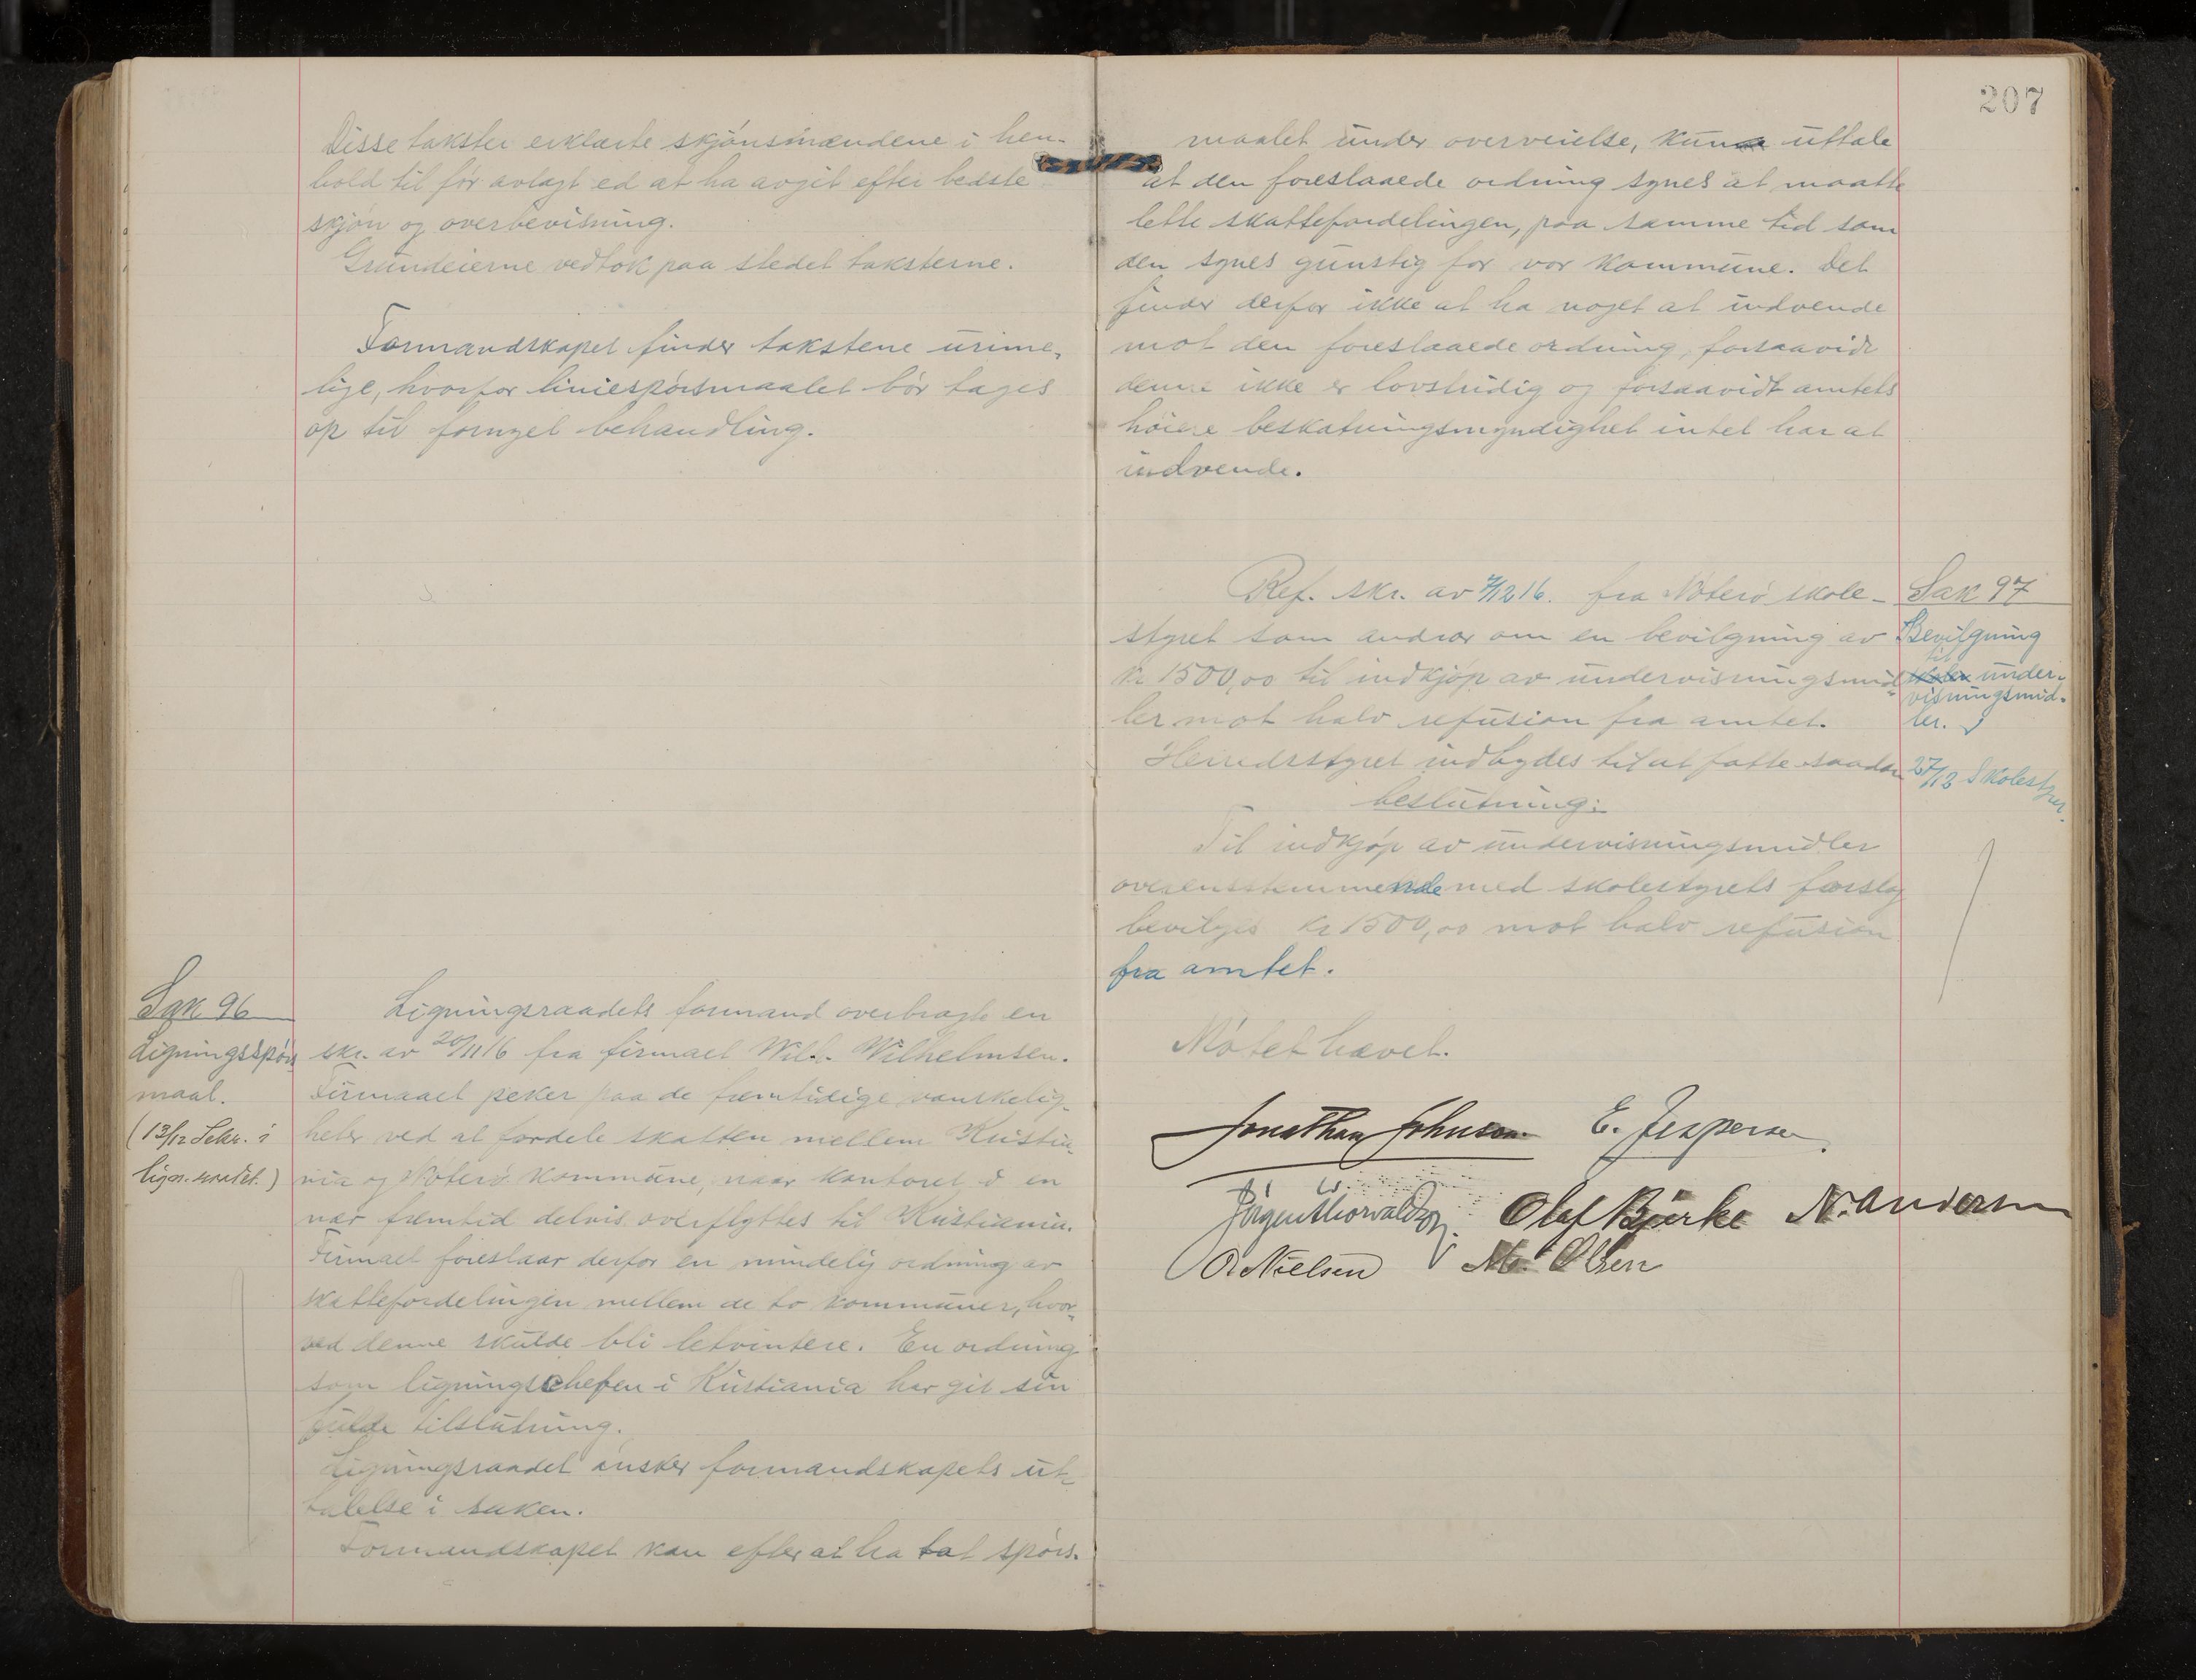 Disse takster erklærte skjønsmændene i hen-
hold til før avlagt ed at ha avgit efter bedste
skjøn og overbevisning.
Grundeierne vedtok paa stedet taksterne.
Formandskapet finder takstene urime-
lige, hvorfor liniespørsmaalet bør tages
op til fornyet behandling.
Sak 96
Ligningsspørs
maal.
(13/12 Sekr. i
Ligningsraadets formand overbragte en
skr. av 20/11 16 fra firmaet Wilh. Wilhelmsen.
Firmaaet peker paa de fremtidige vanskelig-
heter ved at fordele skatten mellem Kristia-
nia og Nøterø kommune, naar kontoret i en
nær fremtid delvis overflyttes til Kristiania.
Firmaet foreslaar derfor en mindelig ordning av
skattefordelingen mellem de to kommuner, hvor-
ved denne skulde bli letvintere. En ordning
som ligningschefen i Kristiania har git sin
fulde tilslutning.
Ligningsraadet ønsker formandskapets ut-
talelse i saken.
Formandskapet kan efter at ha tat spørs-
207
maalet under overveielse, kun uttale
at den foreslaaede ordning synes at maatte
lette skattefordelingen, paa samme tid som
den synes gunstig for vor kommune. Det
finder derfor ikke at ha noget at indvende
mot den foreslaaede ordning, forsaavidt
denne ikke er lovstridig og forsaavidt amtets
høiere beskatningsmyndighet intet har at
indvende.
Sak 97
Bevilgning
til
under-
visningsmid-
ler.
27/12 Skolestyr.
Ref. skr. av 7/12 16. fra Nøterø skole-
styret som andrar om en bevilgning av
Kr 1500,00 til indkjøp av undervisningsmid-
ler mot halv refusion fra amtet.
Herredsstyret indbydes til at fatte saadan
beslutning:
Til indkjøp av undervisningsmidler
overensstemmende med skolestyrets forslag
bevilges kr 1500,00 mot halv refusion
fra amtet.
Møtet hævet.
Jonathan Johnson E. Jespersen
Jørgen Thorvaldsen Olaf Bjerke N. Andersen
O. Nielsen Olsen